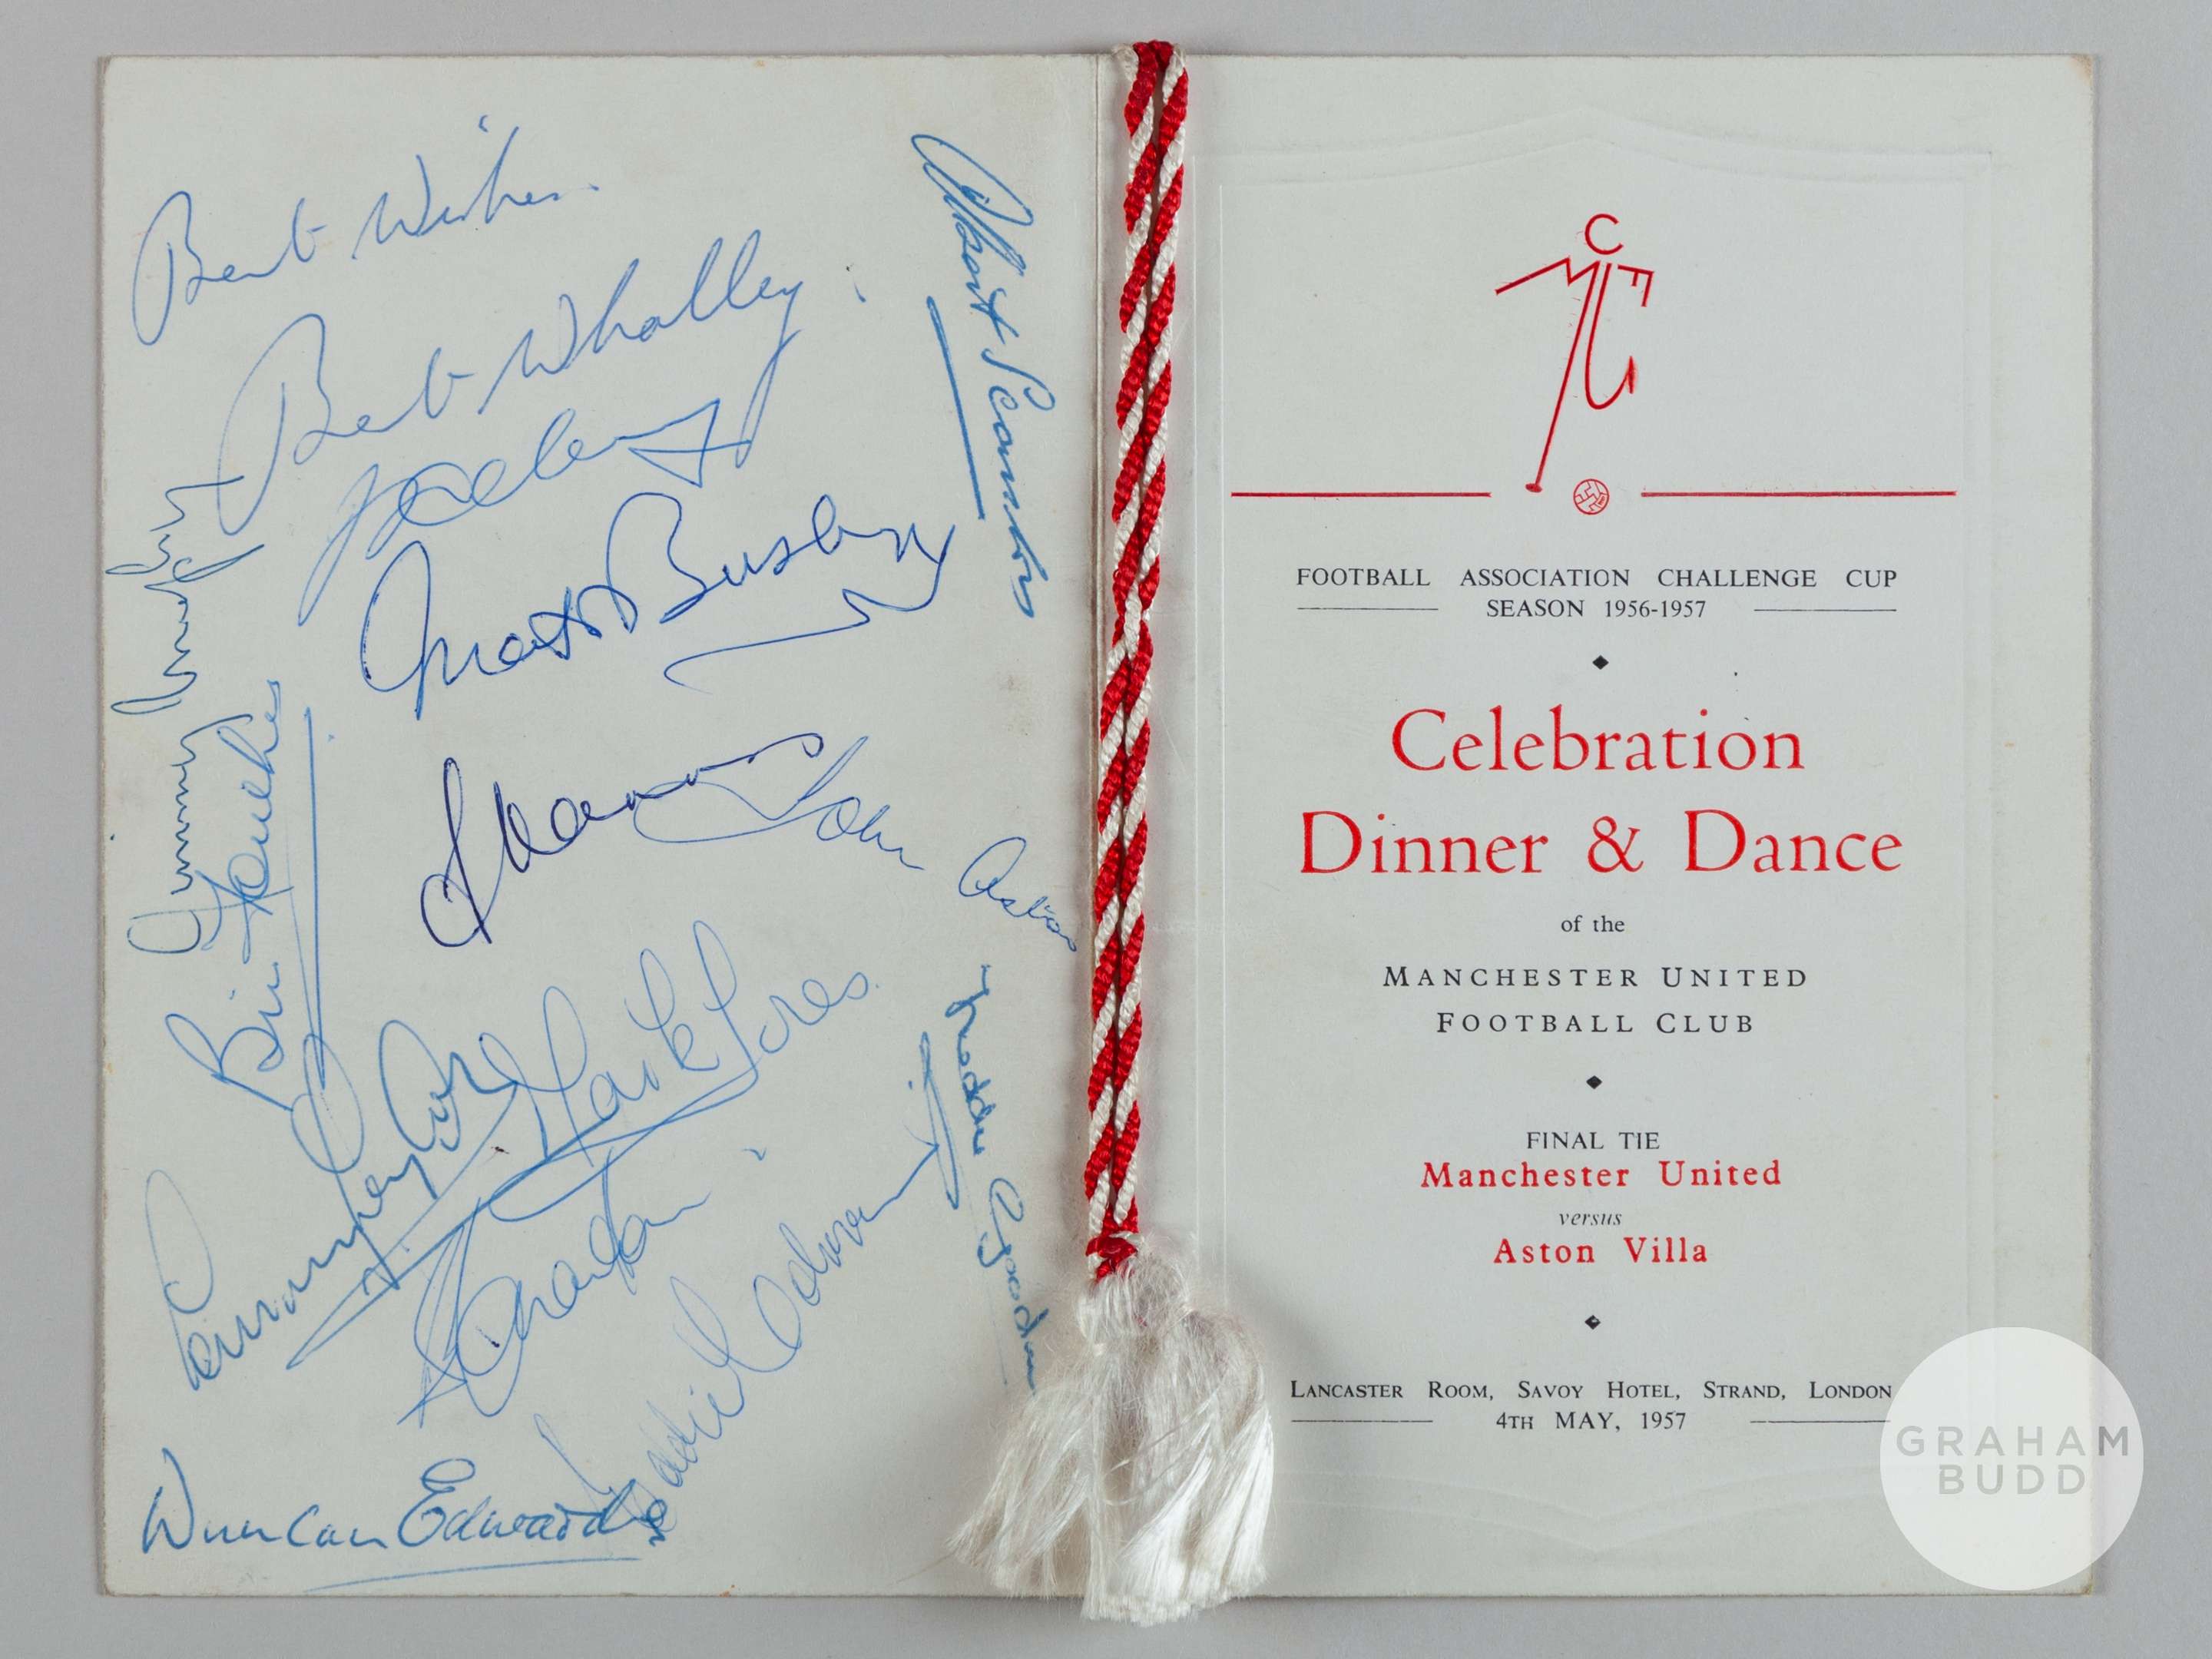 Best Wishes.
Bert Whalley
Matt Busby
Albert Scanlon
Jimmy Murphy
Bill Foulkes
John Aston
Tommy Taylor
Mark Jones
Freddie Goodwin
Duncan Edwards
C
M F
FOOTBALL ASSOCIATION CHALLENGE CUP
SEASON 1956-1957
Celebration
Dinner & Dance
of the
MANCHESTER UNITED
FOOTBALL CLUB
FINAL TIE
Manchester United
versus
Aston Villa
LANCASTER ROOM, SAVOY HOTEL, STRAND, LONDON
4TH MAY, 1957
GRAHAM
BUDD